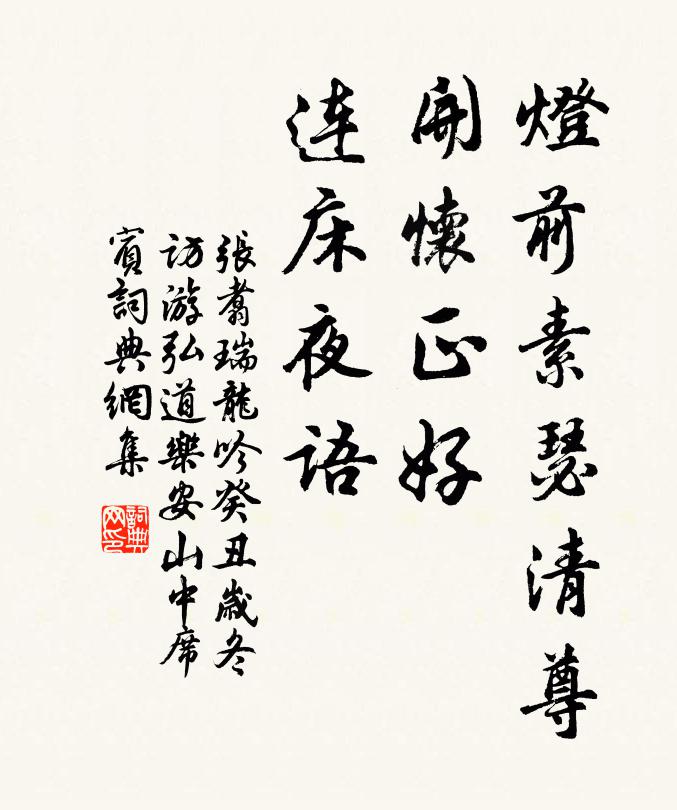 燈前素瑟清尊
開懷正好
連床夜語
張翥瑞龍吟癸丑歲冬
訪游弘道樂安山中席
賓詞典網集
詞典网印